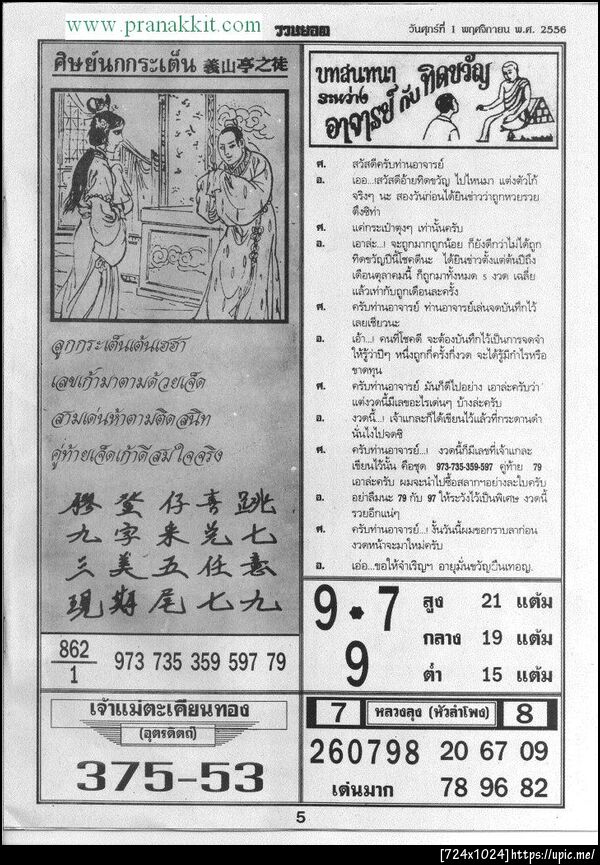 www.pranakkit.com
รวมยอด
วันศุกร์ที่ 1 พฤศจิกายน พ.ศ. 2556
ศิษย์นกกระเต็น 義山亭之徒
ลูกกระเต็นเต้นเฮฮา
เลขเก้ามาตามด้วยเจ็ด
สามเด่นห้าตามติดสนิท
คู่ท้ายเจ็ดเก้าดีสมใจจริง
膠登仔喜跳
九字来兑七
三美五任意
現期尾七九
862
1
973 735 359 597 79
เจ้าแม่ตะเคียนทอง
(อุตรดิตถ์)
375-53
บทสนทนา
ระหว่าง
อาจารย์ กับ ทิดขวัญ
ศ. สวัสดีครับท่านอาจารย์
อ. เออ...!สวัสดีอ้ายทิดขวัญ ไปไหนมา แต่งตัวโก้
จริงๆ นะ สองวันก่อนได้ยินข่าวว่าถูกหวยรวย
ตึงซิท่า
ศ. แค่กระเป๋าตุงๆ เท่านั้นครับ
อ. เอาล่ะ...! จะถูกมากถูกน้อย ก็ยังดีกว่าไม่ได้ถูก
ทิดขวัญปีนี้โชคดีนะ ได้ยินข่าวตั้งแต่ต้นปีถึง
เดือนตุลาคมนี้ ก็ถูกมาทั้งหมด 5 งวด เฉลี่ย
แล้วเท่ากับถูกเดือนละครั้ง
ศ. ครับท่านอาจารย์ ท่านอาจารย์เล่นจดบันทึกไว้
เลยเชียวนะ
อ. เอ้า...! คนที่โชคดี จะต้องบันทึกไว้เป็นการจดจำ
ให้รู้ว่าปีๆ หนึ่งถูกกี่ครั้งกี่งวด จะได้รู้มีกำไรหรือ
ขาดทุน
ศ. ครับท่านอาจารย์ มันก็ดีไปอย่าง เอาล่ะครับว่า
แต่งวดนี้มีเลขอะไรเด่นๆ บ้างล่ะครับ
อ. งวดนี้...! เจ้าแกละก็ได้เขียนไว้แล้วที่กระดานดำ
นั่นไงไปจดซิ
ศ. ครับท่านอาจารย์...! งวดนี้ก็มีเลขที่เจ้าแกละ
เขียนไว้นั้น คือชุด 973-735-359-597 คู่ท้าย 79
เอาล่ะครับ ผมจะนำไปซื้อสลากฯอย่างละใบครับ
อ. อย่าลืมนะ 79 กับ 97 ให้ระวังไว้เป็นพิเศษ งวดนี้
รวยอีกแน่ๆ
ศ. ครับท่านอาจารย์...! งั้นวันนี้ผมขอกราบลาก่อน
งวดหน้าจะมาใหม่ครับ
อ. เอ่อ...ขอให้จำเริญๆ อายุมั่นขวัญยืนเทอญ.
9 • 7
9
สูง 21 แต้ม
กลาง 19 แต้ม
ต่ำ 15 แต้ม
7 หลวงลุง (หัวลำโพง) 8
260798 20 67 09
เด่นมาก 78 96 82
5
[724x1024]https://upic.me/